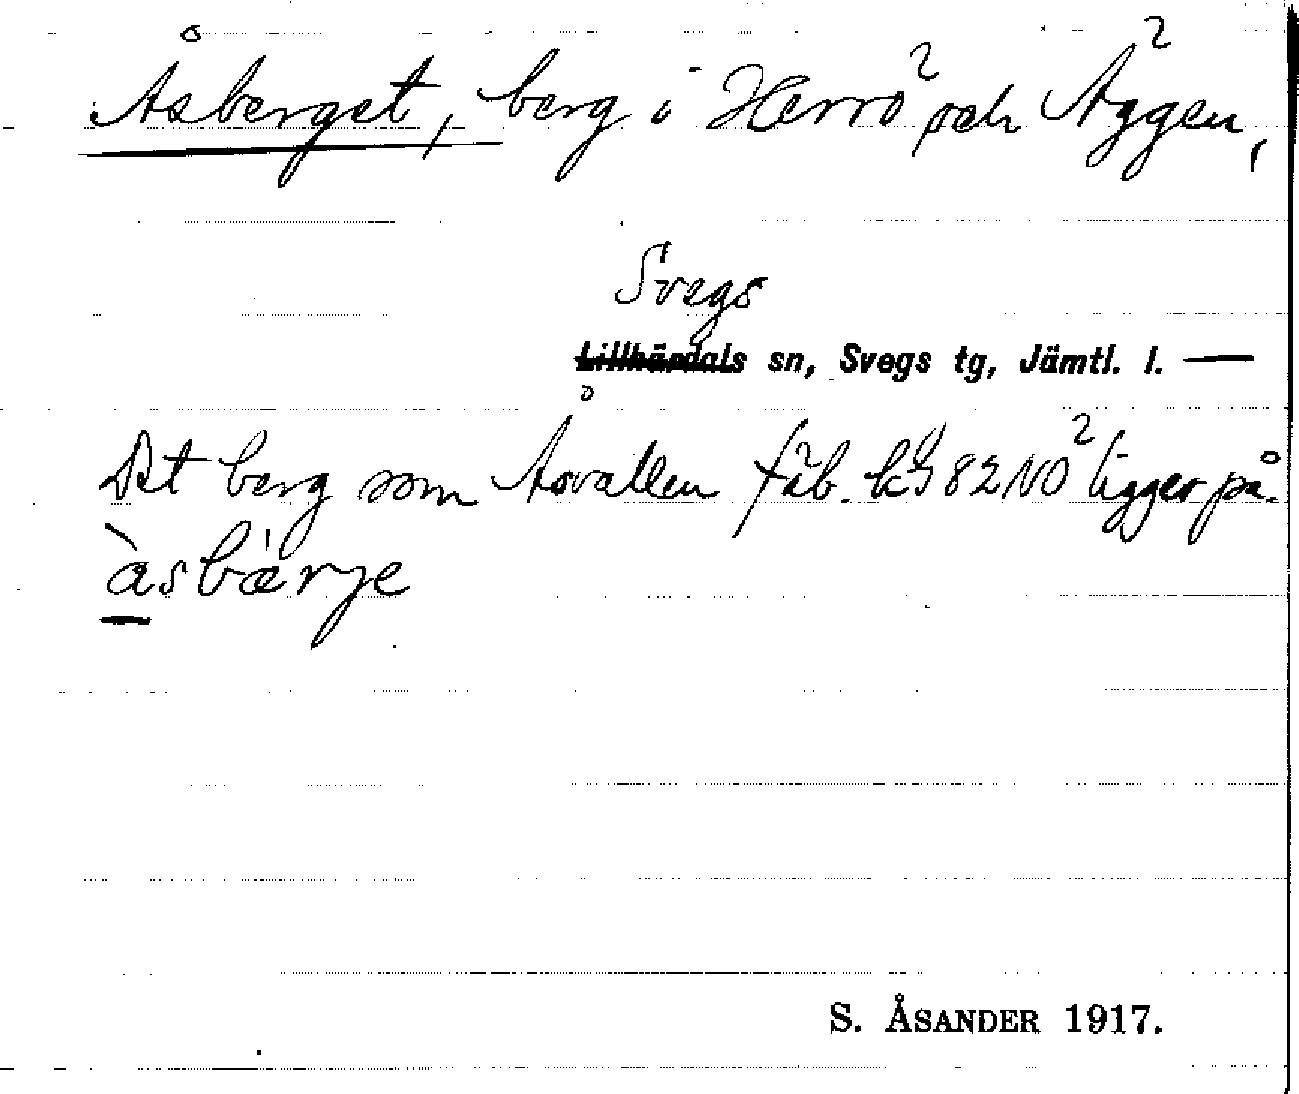 Åsberget, berg i Herrö och Äggen,
Svegs
Lillhärdals sn, Svegs tg, Jämtl. l. —
Det berg som Åsvallen fäb. 82 NO ligger på.
àsbærje
S. ÅSANDER 1917.